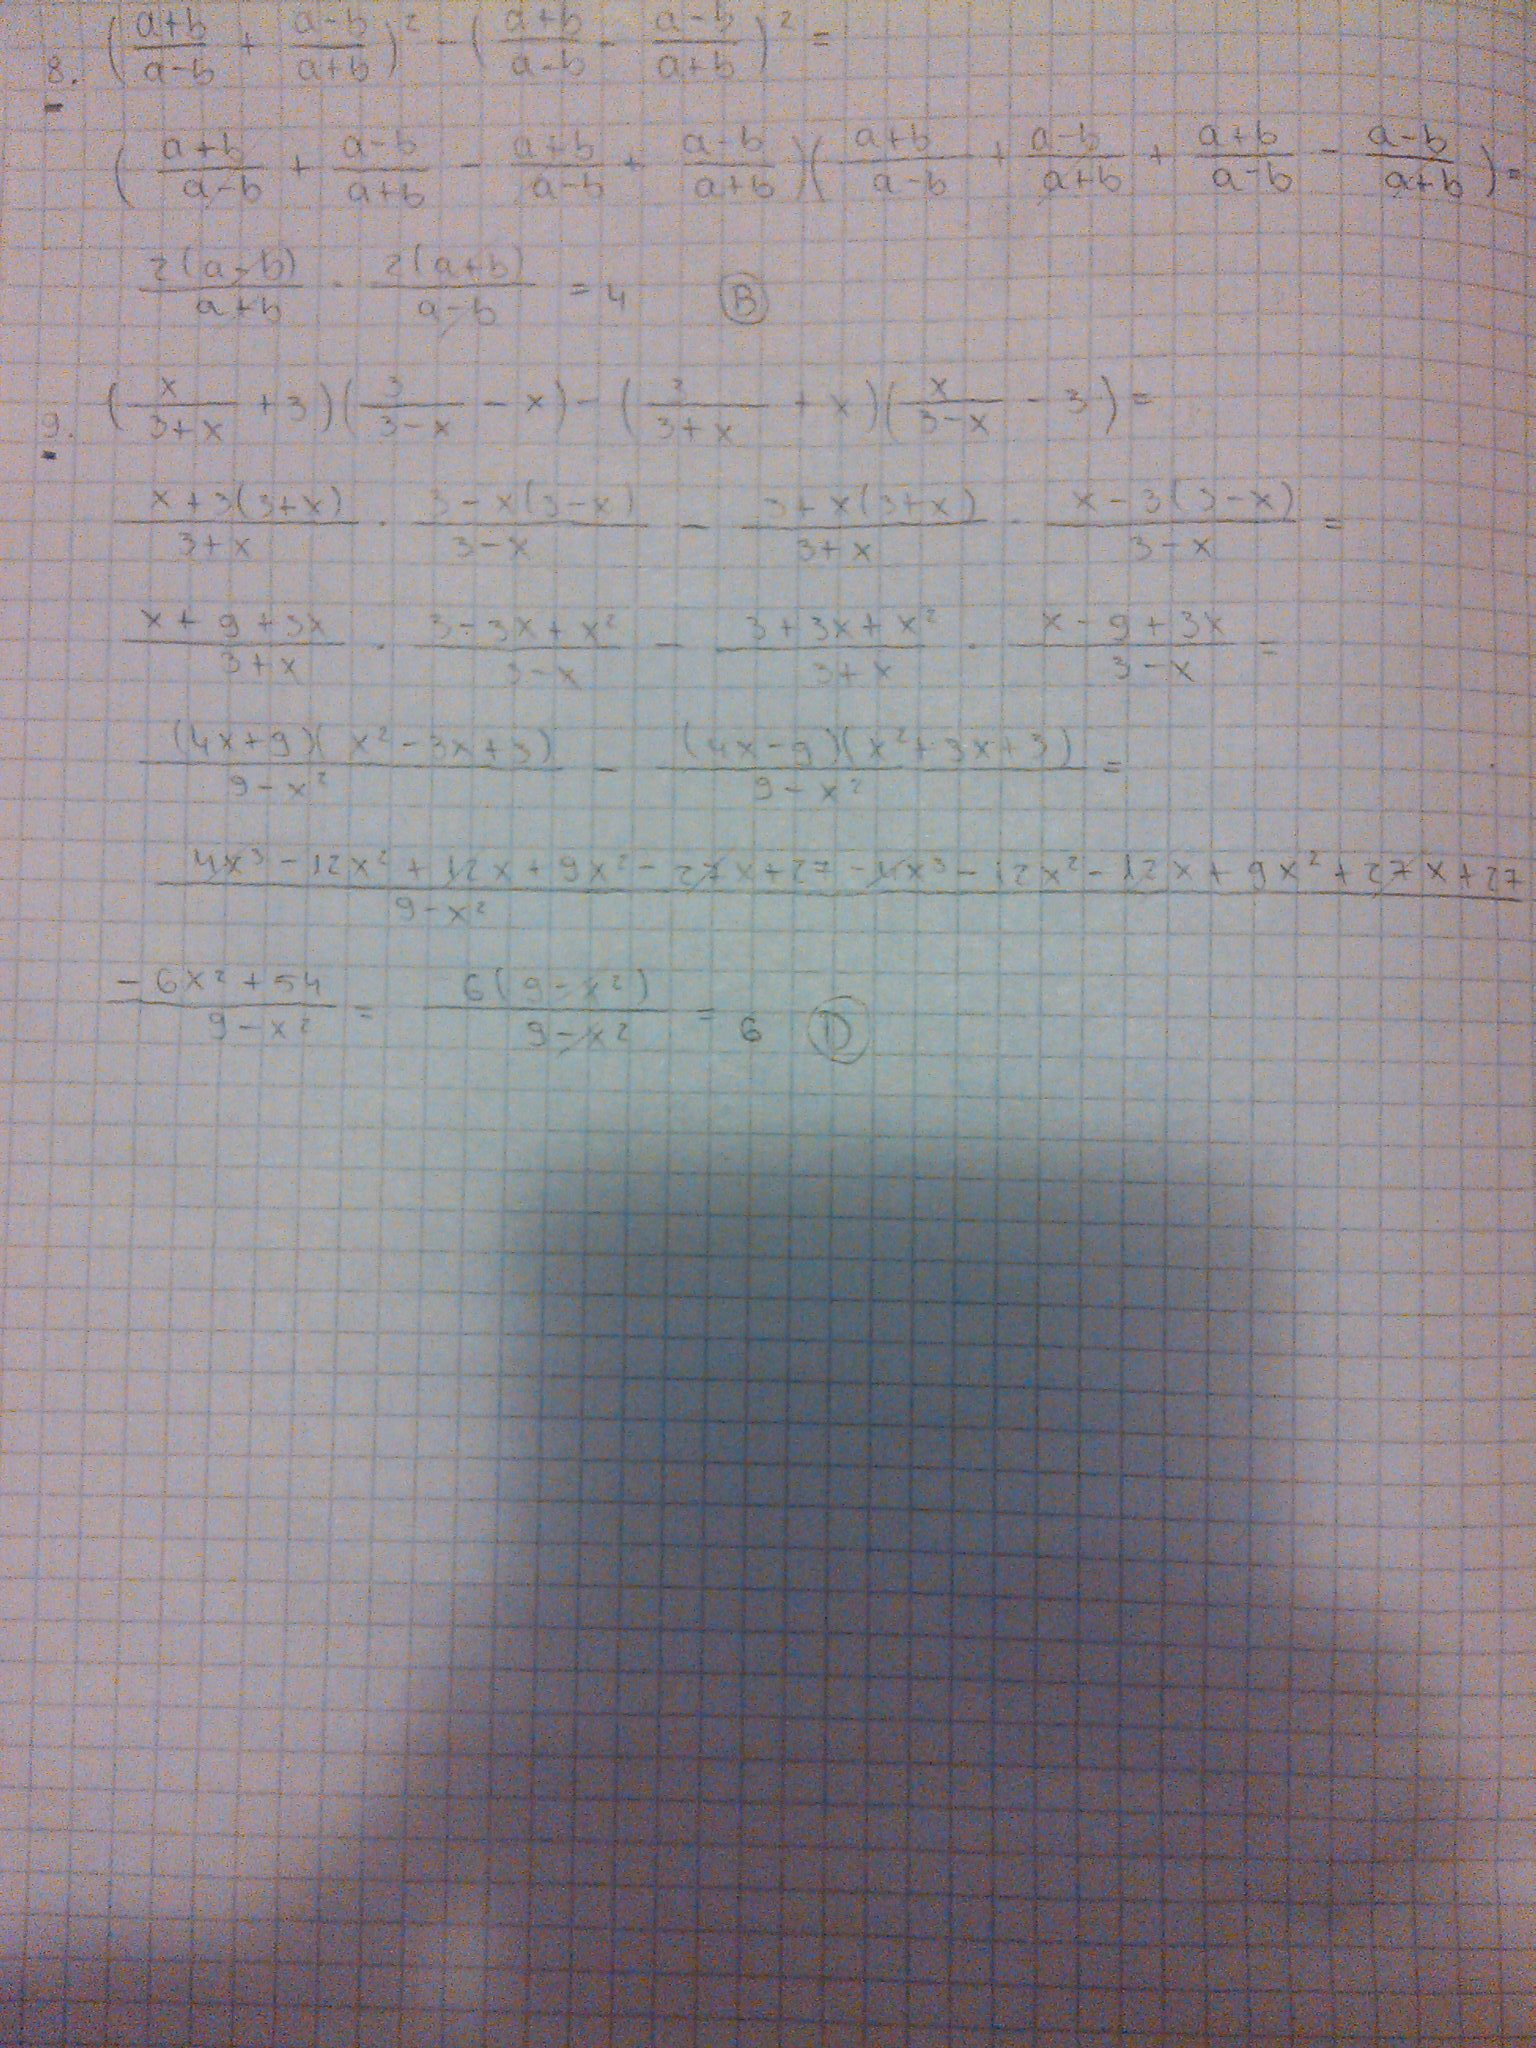 8. (a+b/a-b + a-b/a+b)² - (a+b/a-b - a-b/a+b)² =
(a+b/a-b + a-b/a+b - a+b/a-b + a-b/a+b)(a+b/a-b + a-b/a+b + a+b/a-b - a-b/a+b) =
2(a-b)/a+b · 2(a+b)/a-b = 4 B
9. (x/3+x + 3)(3/3-x - x) - (3/3+x + x)(x/3-x - 3) =
x+3(3+x)/3+x · 3-x(3-x)/3-x - 3+x(3+x)/3+x · x-3(3-x)/3-x =
x+9+3x/3+x · 3-3x+x²/3-x - 3+3x+x²/3+x · x-9+3x/3-x =
(4x+9)(x²-3x+3)/9-x² - (4x-9)(x²+3x+3)/9-x² =
4x³-12x²+12x+9x²-27x+27-4x³-12x²-12x+9x²+27x+27/9-x²
-6x²+54/9-x² = 6(9-x²)/9-x² = 6 D